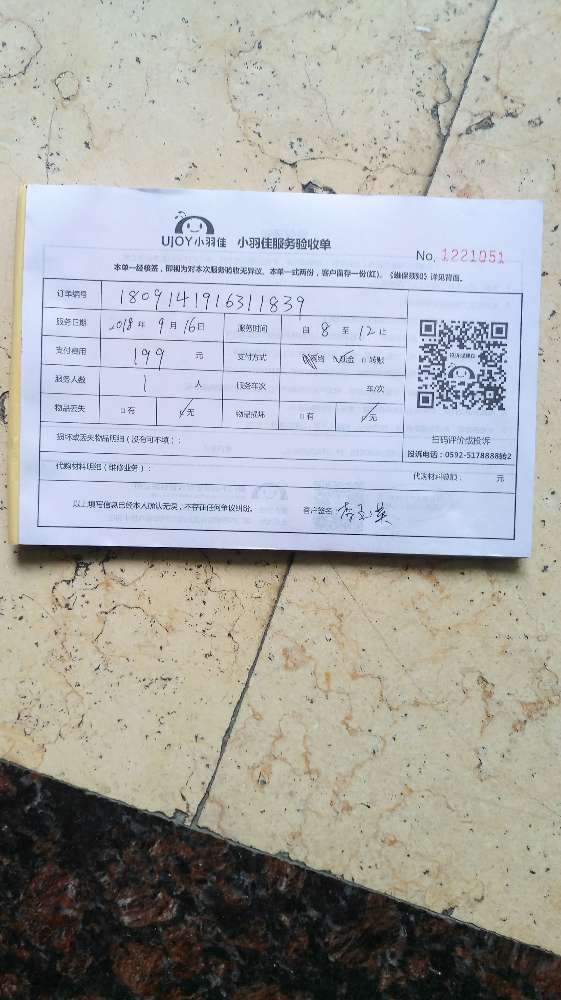 UJOY小羽佳 小羽佳服务验收单
No. 1221051
本单一经核签，即视为对本次服务验收无异议。本单一式两份，客户留存一份(红)。《维保须知》详见背面。
订单编号 1809141916311839
服务日期 2018年 9月 16日 服务时间 自 8 至 12止
支付费用 199 元 支付方式 现金 □转账
服务人数 1 人 服务车次 车/次
物品丢失 □有 ☑无 物品损坏 □有 ☑无
损坏或丢失物品明细（没有可不填）：
扫码评价或投诉
投诉电话：0592-5178888转2
代购材料明细（维修业务）： 代购材料总额： 元
以上填写信息已经本人确认无误，不存在任何争议纠纷。 客户签名